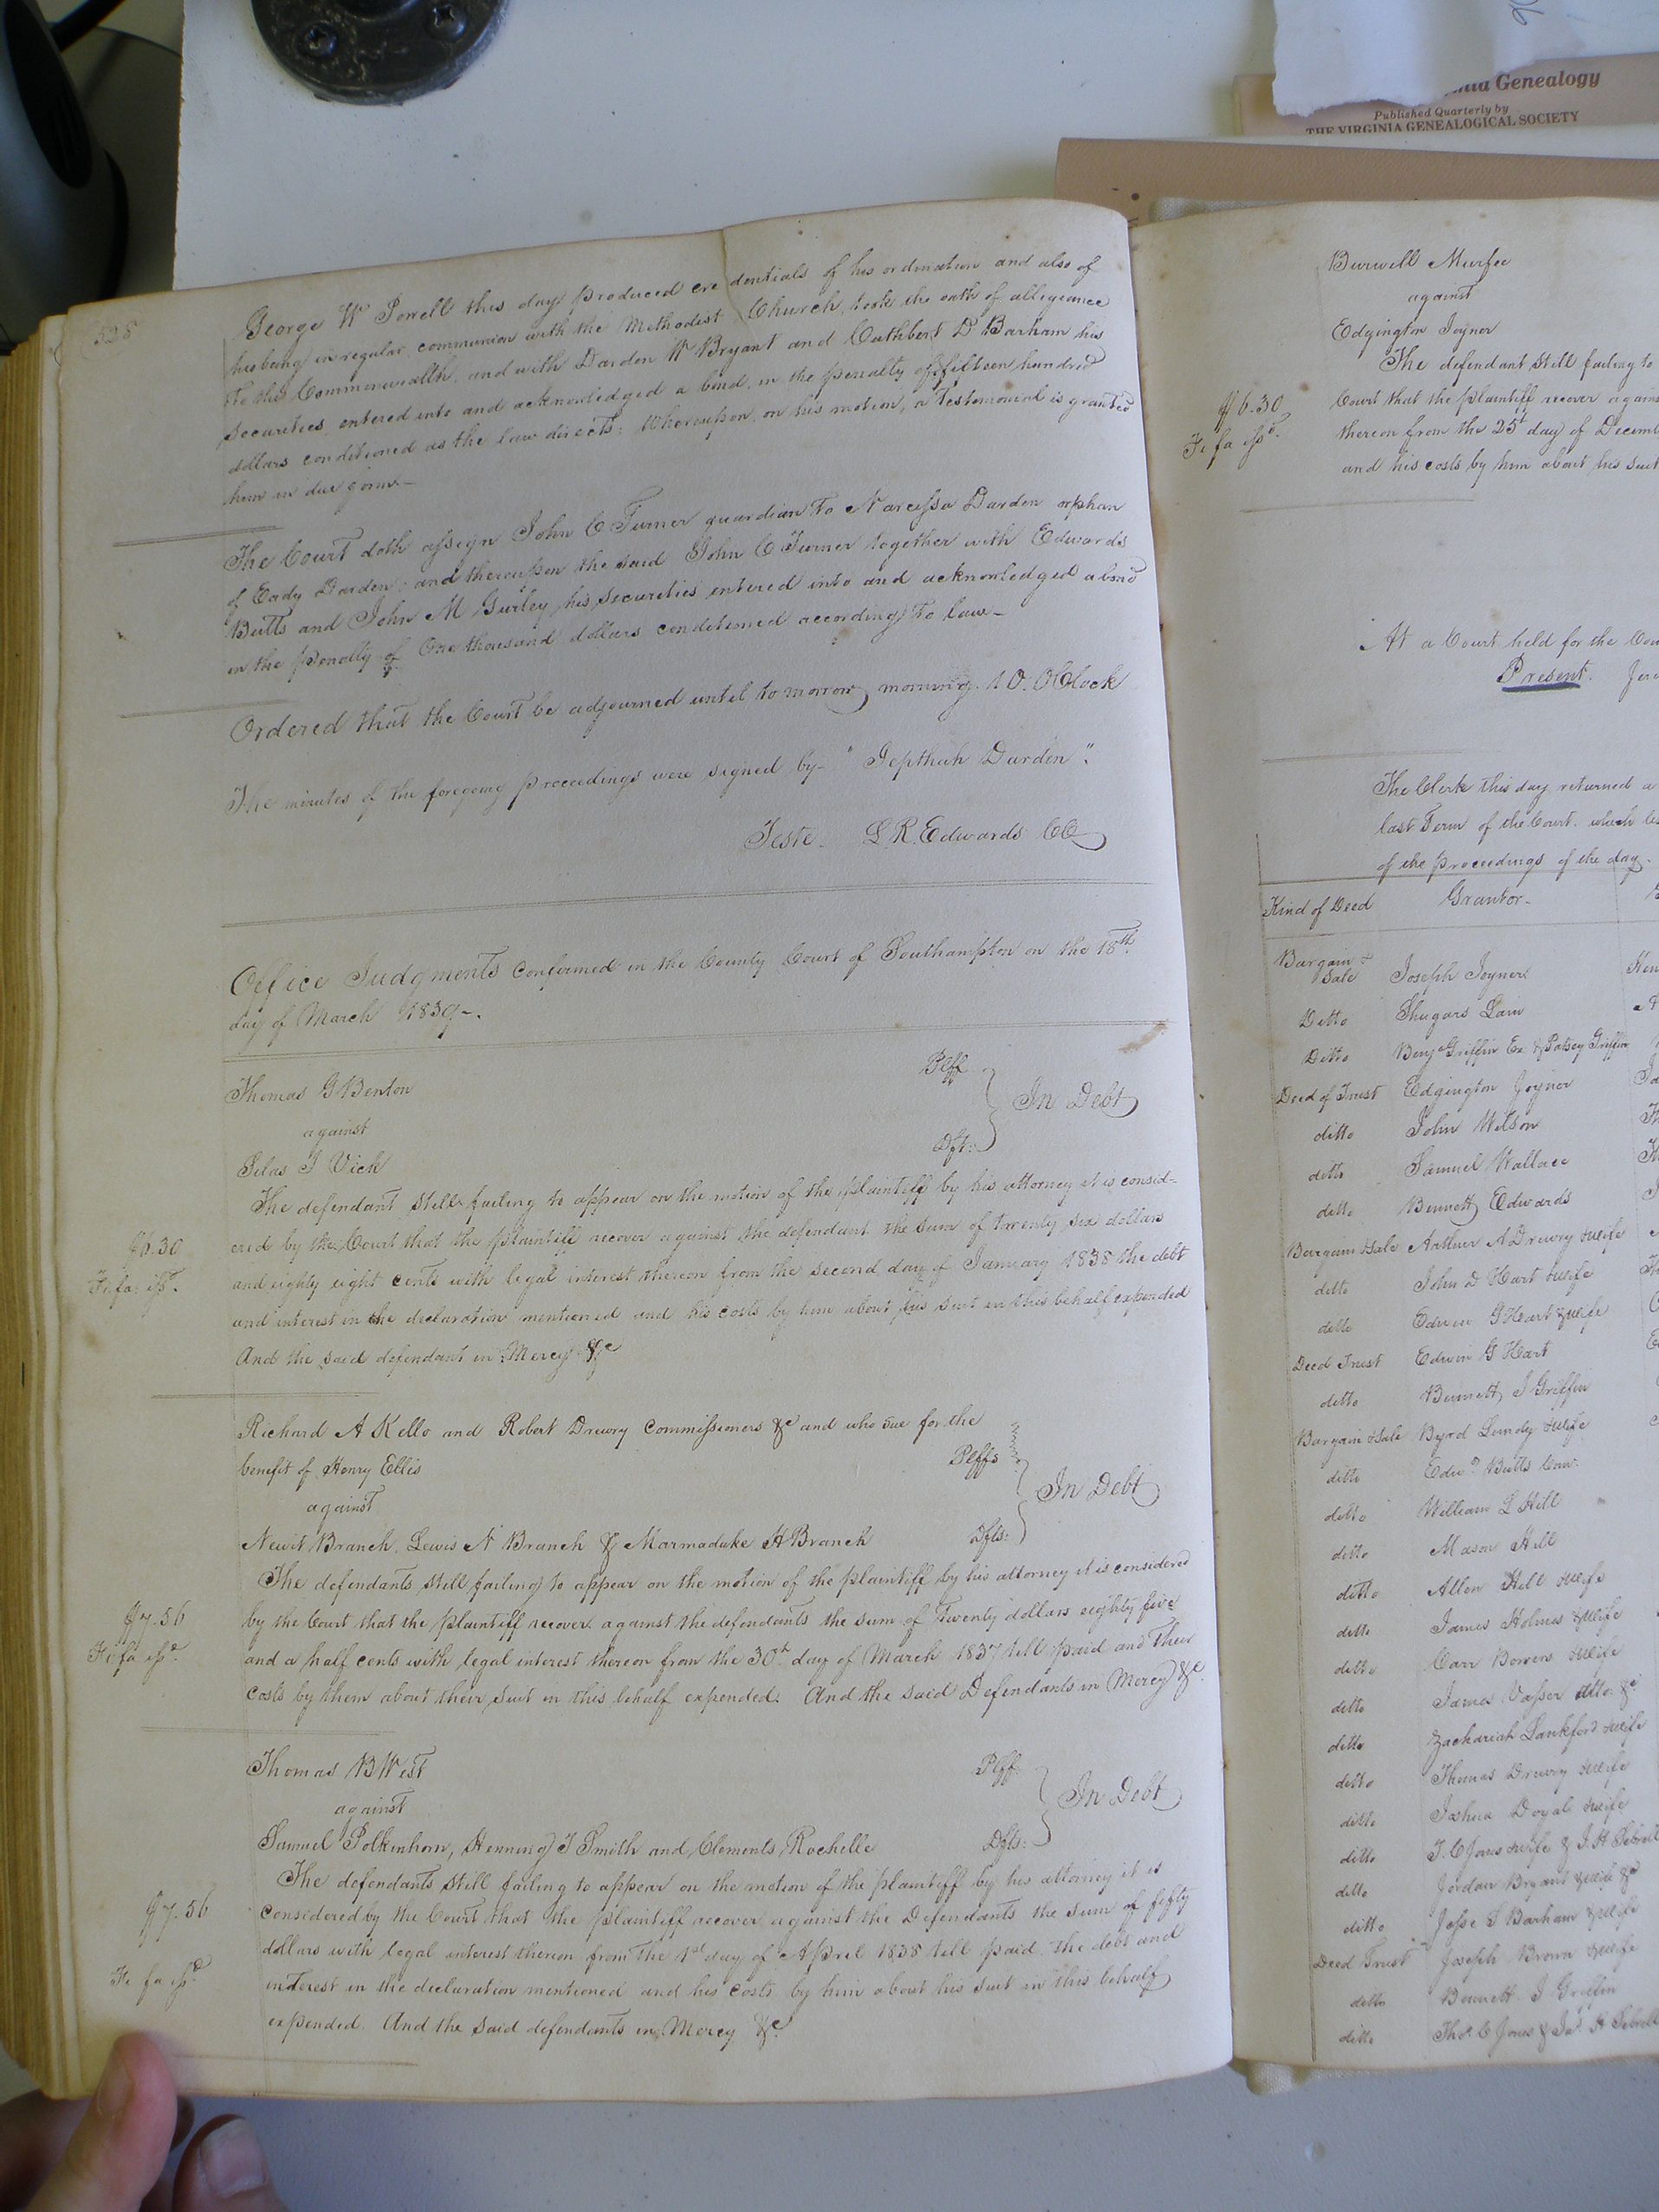 Genealogy
Published Quarterly by
THE VIRGINIA GENEALOGICAL SOCIETY
328
George W Powell this day produced credentials of his ordination and also of
his being in regular communion with the Methodist Church, took the oath of allegiance
to the Commonwealth, and with Darden W Bryant and Cuthbert D Barham his
securities entered into and acknowledged a bond, in the penalty of fifteen hundred
dollars conditioned as the law directs: Whereupon, on his motion, a Testimonial is granted
him in due form -
The Court doth assign John C Turner guardian to Narcissa Darden orphan
of Eady Darden; and thereupon the said John C Turner together with Edwards
Butts and John M Gurley his securities entered into and acknowledged a bond
in the penalty of One thousand dollars conditioned according to law -
Ordered that the Court be adjourned until tomorrow morning 10. OClock
The minutes of the foregoing proceedings were signed by - "Jepthah Darden".
Teste - L. R. Edwards CC
Office Judgments confirmed in the County Court of Southampton on the 18th
day of March 1839 -.
Thomas G Benton Plff
against
In Debt
Silas J Vick Dft:
The defendant still failing to appear on the motion of the plaintiff by his attorney it is consid-
ered by the Court that the plaintiff recover against the defendant the sum of twenty six dollars
$6.30
and eighty eight cents with legal interest thereon from the second day of January 1838 the debt
Fi fa issd.
and interest in the declaration mentioned and his costs by him about his suit in this behalf expended
And the said defendant in Mercy &c
Richard A Kello and Robert Drewry Commissioners &c and who sue for the
benefit of Henry Ellis Plffs
against
In Debt
Newit Branch, Lewis N Branch & Marmaduke H Branch Dfts:
The defendants still failing to appear on the motion of the plaintiff by his attorney it is considered
$7.56
by the Court that the plaintiff recover against the defendants the sum of Twenty dollars eighty five
Fi fa issd.
and a half cents with legal interest thereon from the 30th day of March 1837 till paid and their
costs by them about their suit in this behalf expended. And the said Defendants in Mercy &c
Thomas B West Plff
against
In Debt
Samuel Polkenhorn, Henning T Smith and Clements Rochelle Dfts:
The defendants still failing to appear on the motion of the plaintiff by his attorney it is
$7.56
considered by the Court that the plaintiff recover against the Defendants the sum of fifty
dollars with legal interest thereon from the 1st day of April 1838 till paid. the debt and
Fi fa issd
interest in the declaration mentioned and his costs by him about his suit in this behalf
expended. And the said defendants in Mercy &c.
Burwell Murfee
against
Edgington Joyner
The defendant still failing to
$6.30
Court that the plaintiff recover
Fi fa issd.
thereon from the 25t day of
and his costs by him about his suit
At a Court held for the
Present.
The Clerk this day returned a
last Term of the Court. which
of the proceedings of the day -
Kind of Deed Grantor -
Bargain & Sale Joseph Joyner
Ditto Shugars Lain
Ditto Benj Griffin Ex & Patsey Griffin
Deed of Trust Edgington Joyner
ditto John Wilson
ditto Samuel Wallace
ditto Bennett Edwards
Bargain & Sale Arthur A Drewry & wife
ditto John D Hart & wife
ditto Edwin G Hart & wife
Deed Trust Edwin G Hart
ditto Bennett J Griffin
Bargain & Sale Byrd Lundy & wife
ditto Edwd Butts
ditto William L Hill
ditto Mason Hill
ditto Allen Hill & wife
ditto James Holmes & wife
ditto Carr Bowers & wife
ditto James Vasser atto &c
ditto Zachariah Lankford & wife
ditto Thomas Drewry & wife
ditto Joshua Doyal & wife
ditto T. C Jones & wife & J. H Sebrell
ditto Jordan Bryant & wife &c
ditto Jesse S Barham & wife
Deed Trust Joseph Brown & wife
ditto Bennett J Griffin
ditto Thos C Jones & Jas H Sebrell